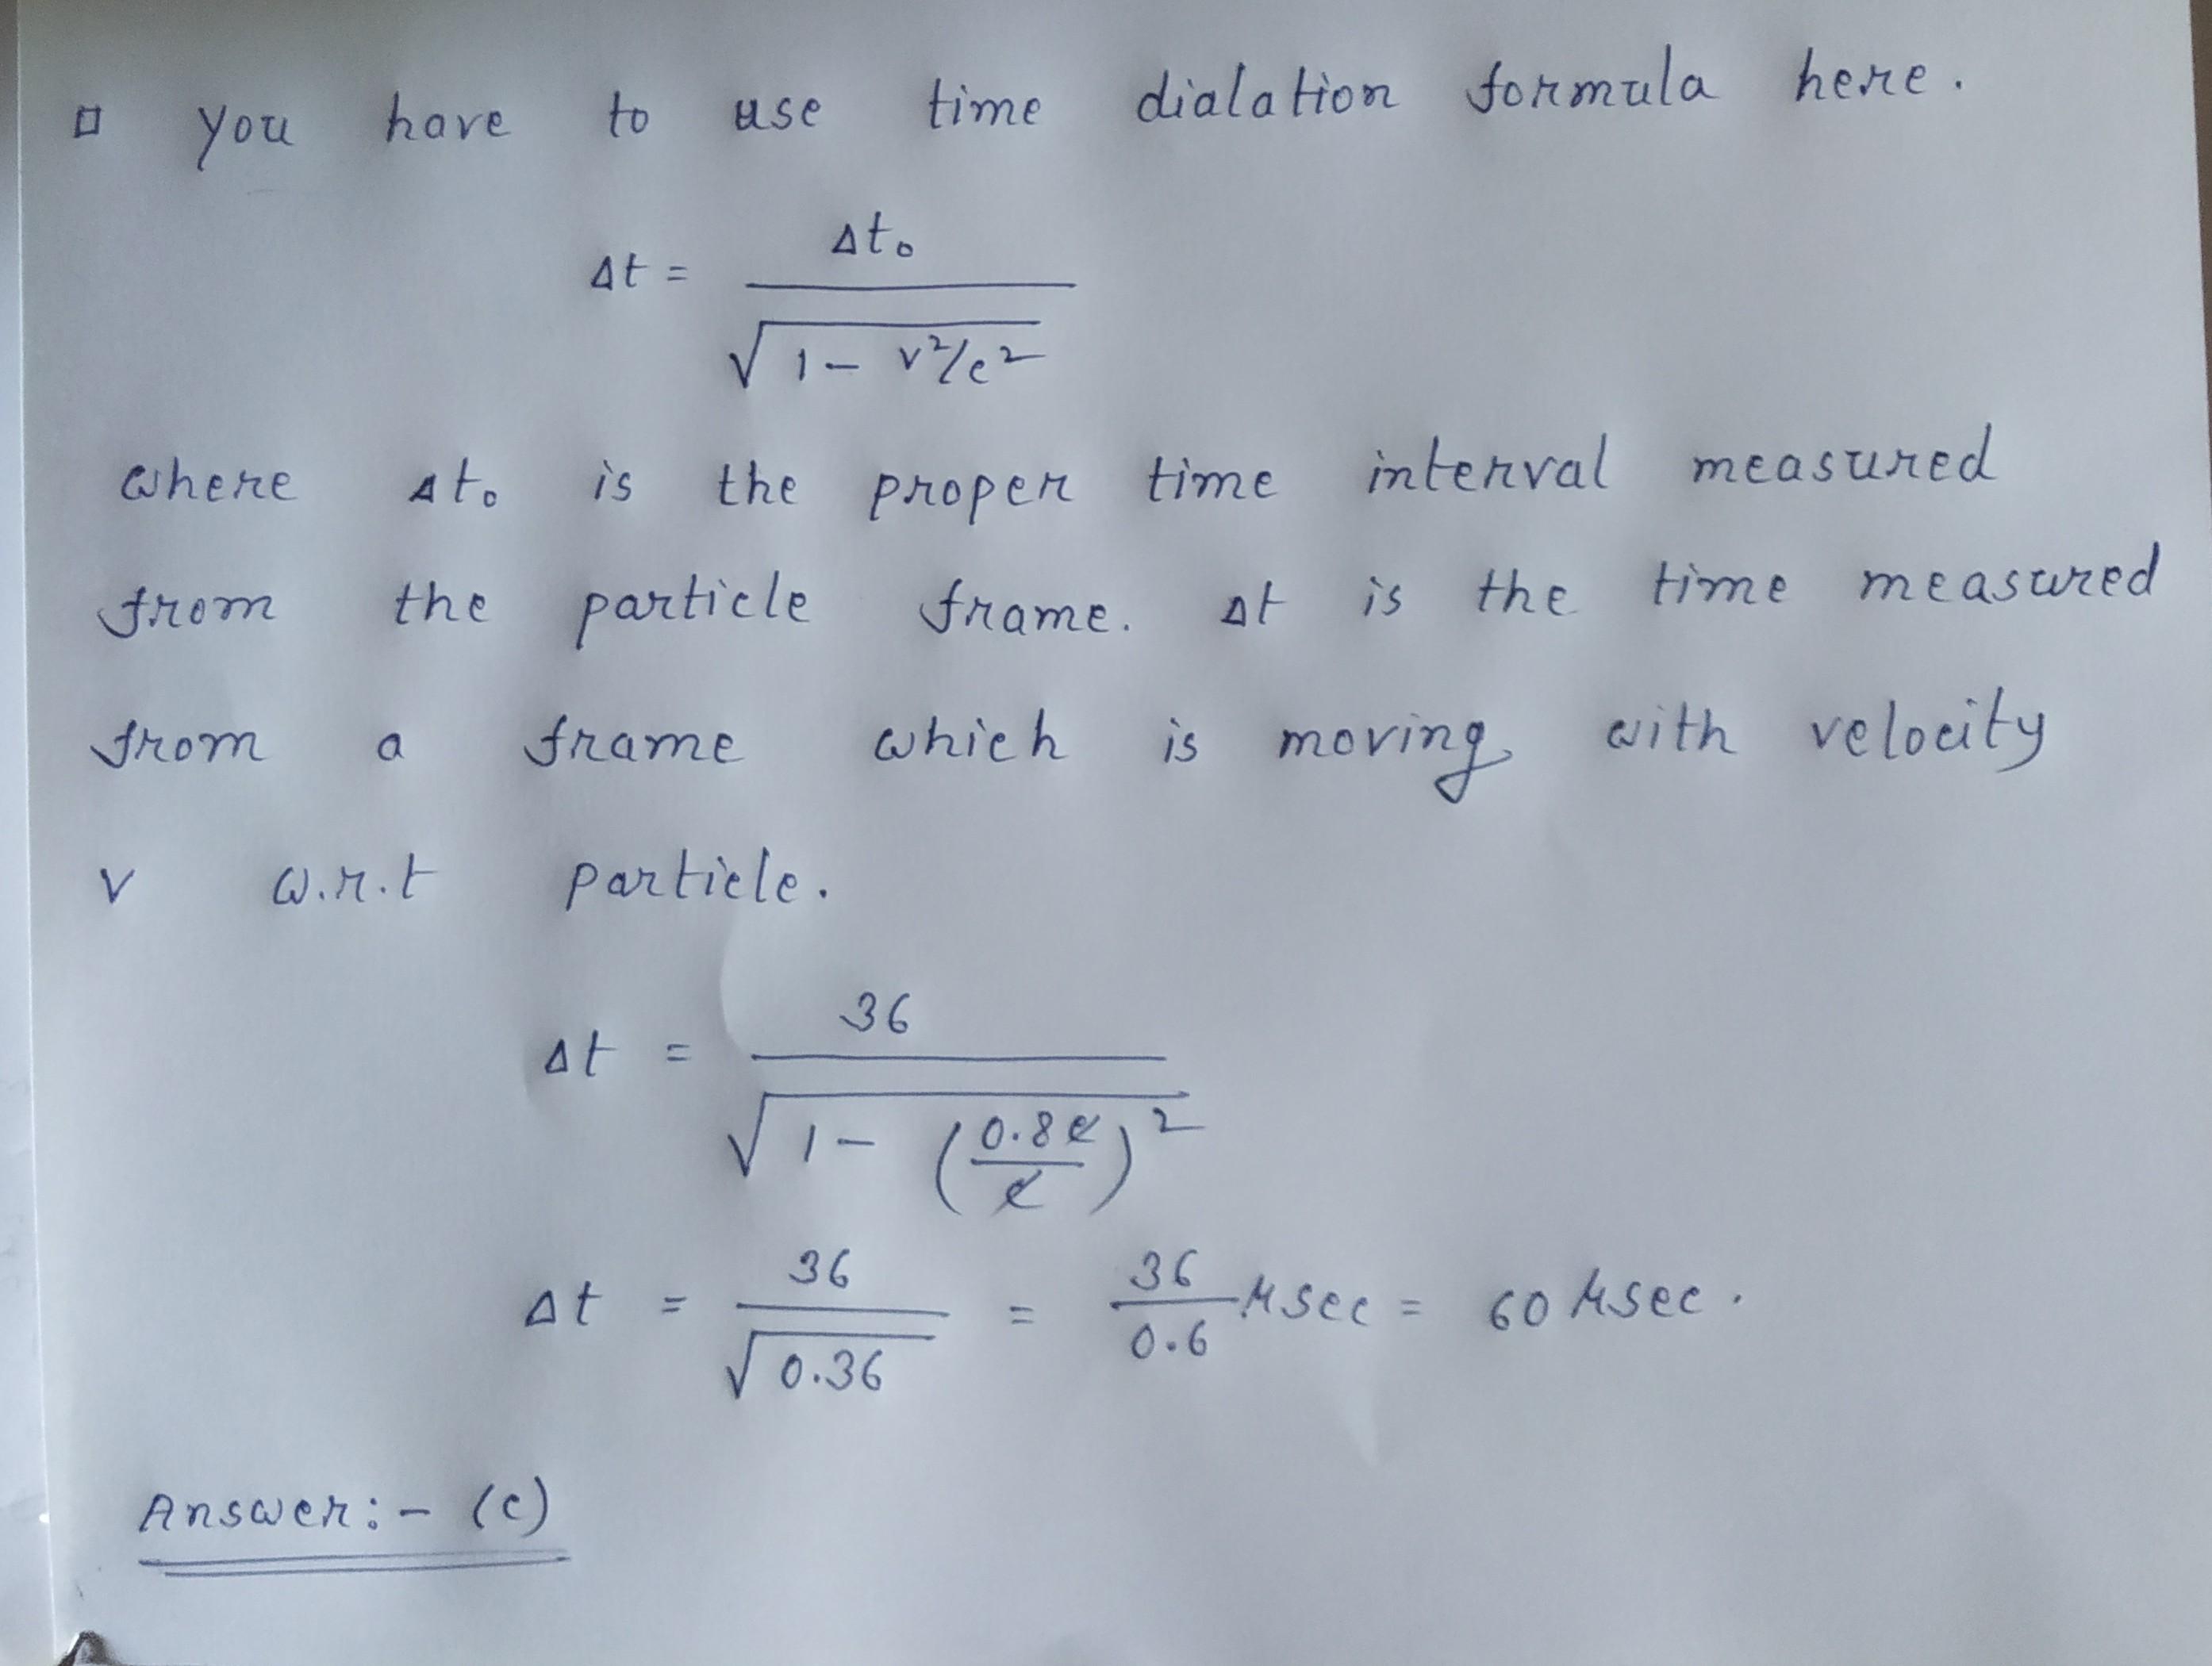 ▫ you have to use time dialation formula here.
Δt = Δt₀ / √(1 - v²/c²)
where Δt₀ is the proper time interval measured
from the particle frame. Δt is the time measured
from a frame which is moving with velocity
v w.r.t particle.
Δt = 36 / √(1 - (0.8c/c)²)
Δt = 36 / √0.36 = 36/0.6 μsec = 60 μsec.
Answer:- (c)